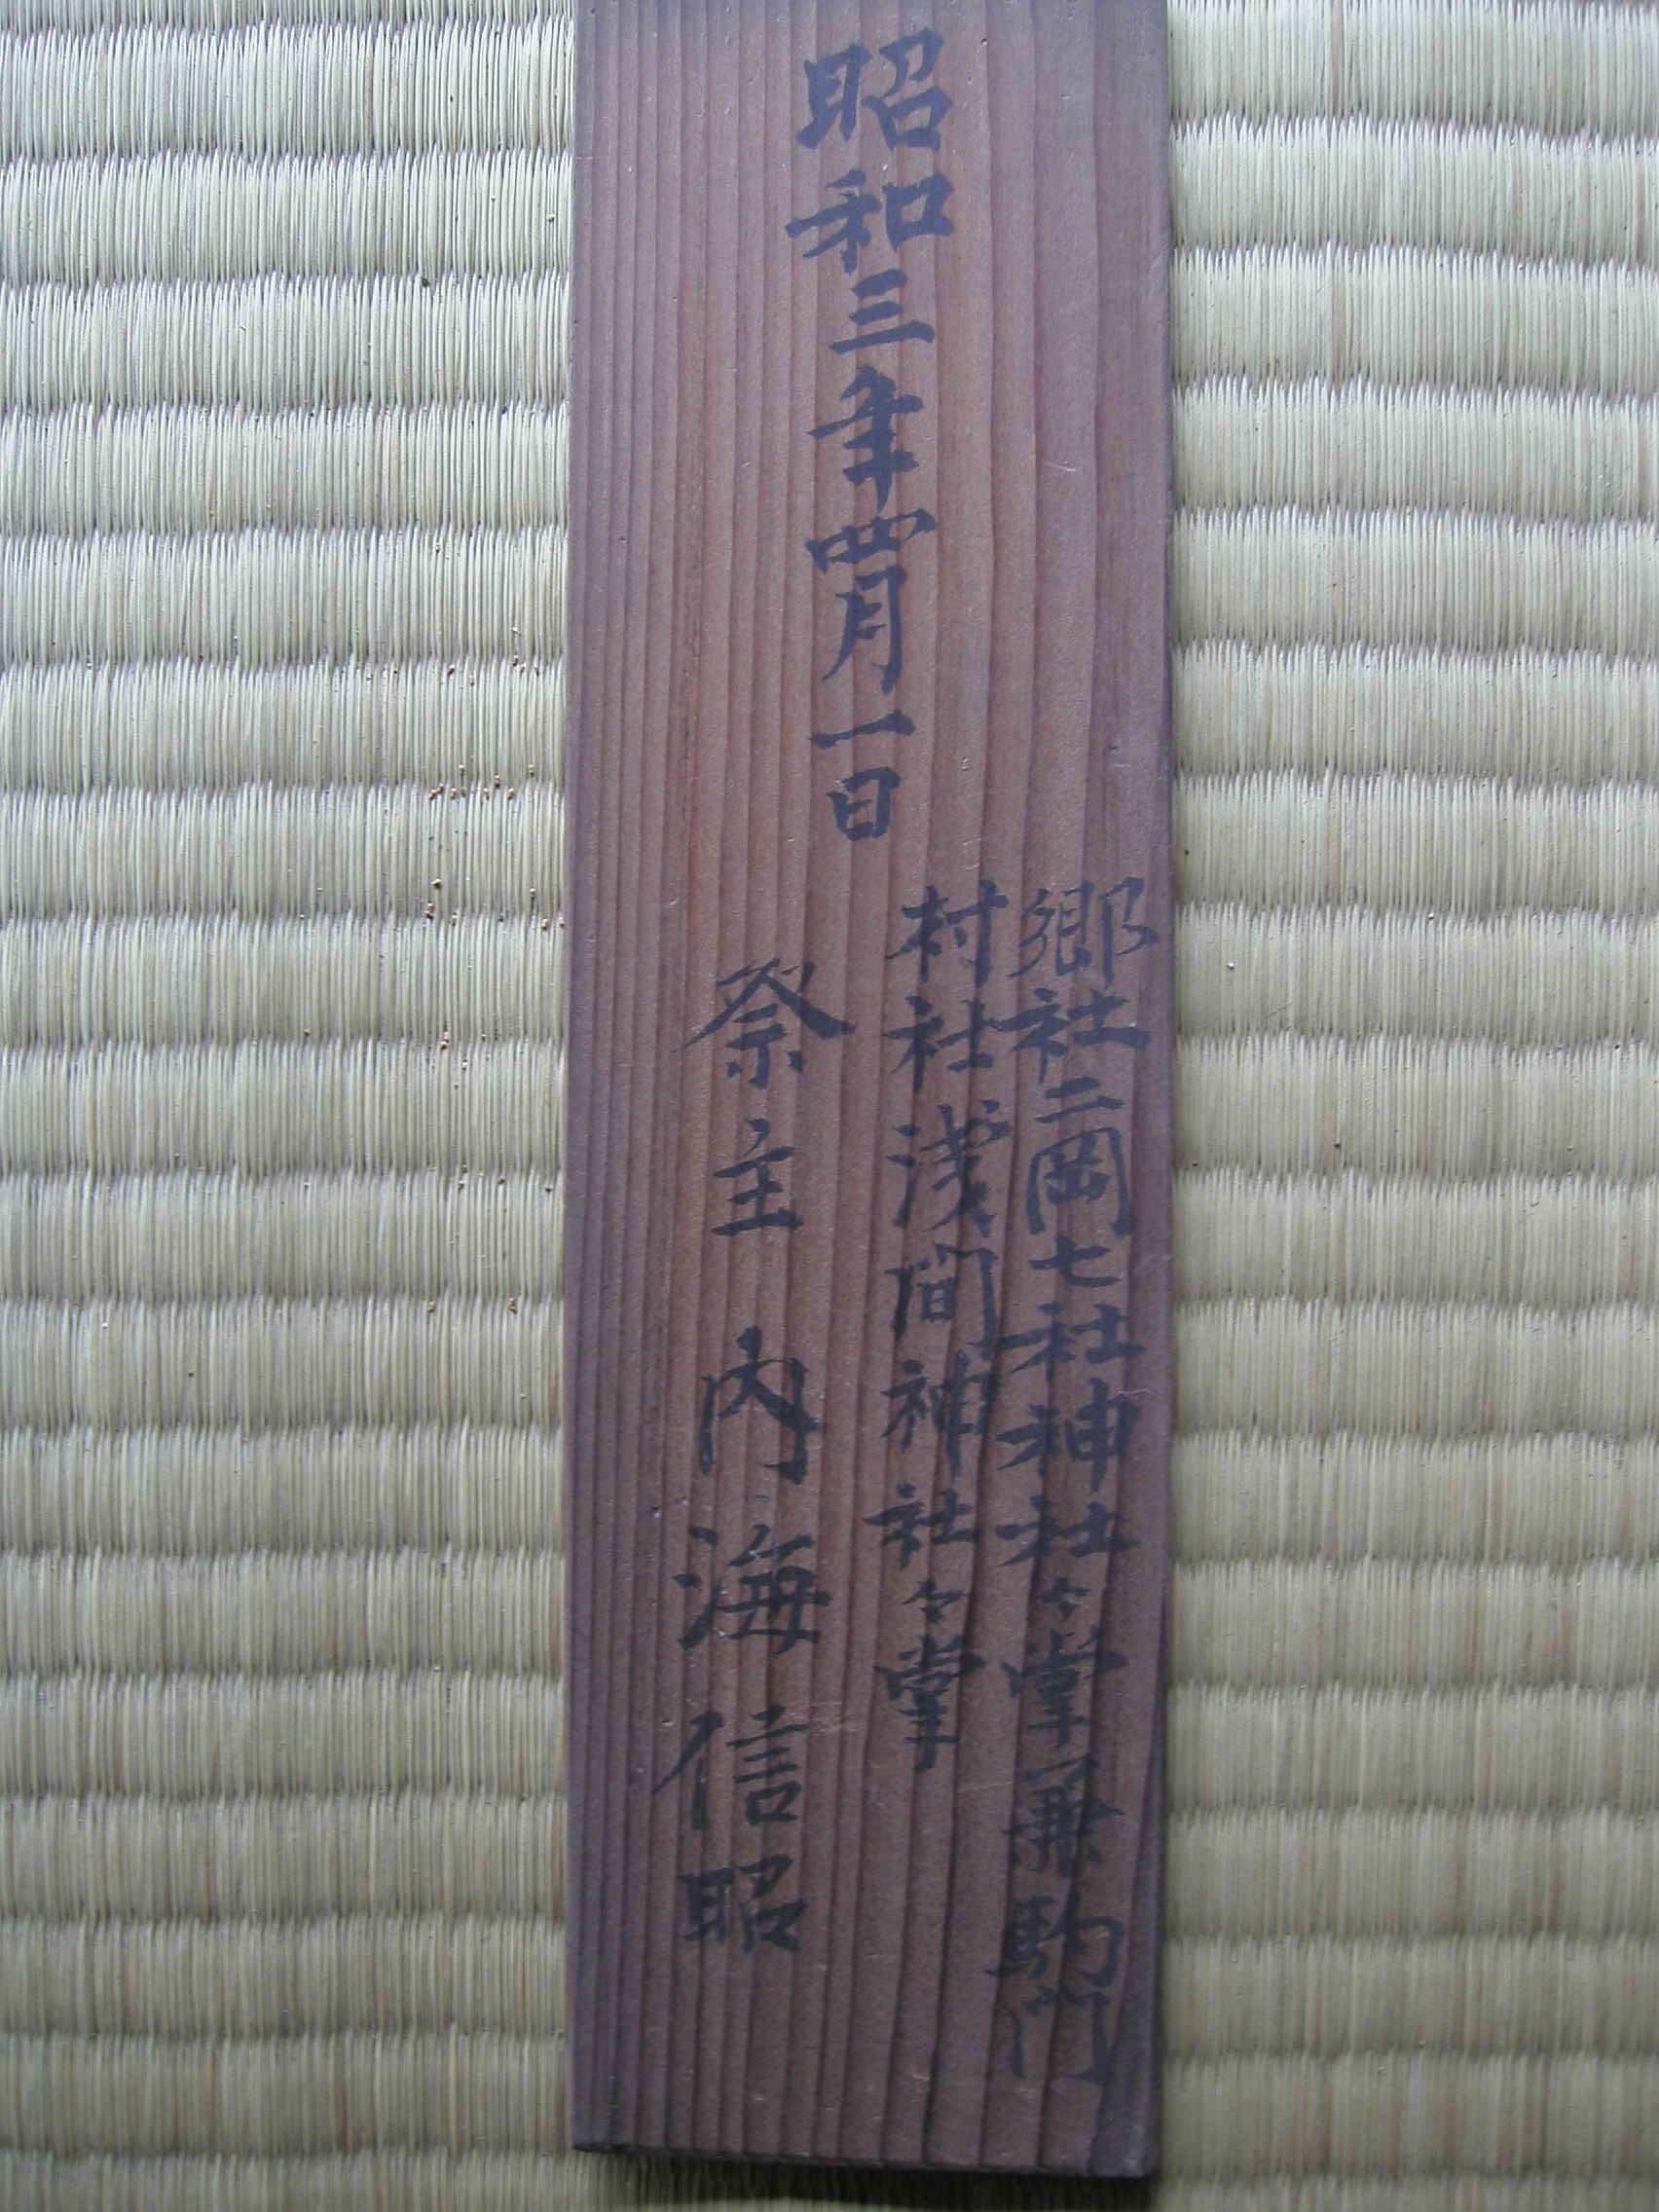 昭和三年四月一日
郷社二岡七社神社々掌兼駒門
村社浅間神社々掌
祭主 内海信昭